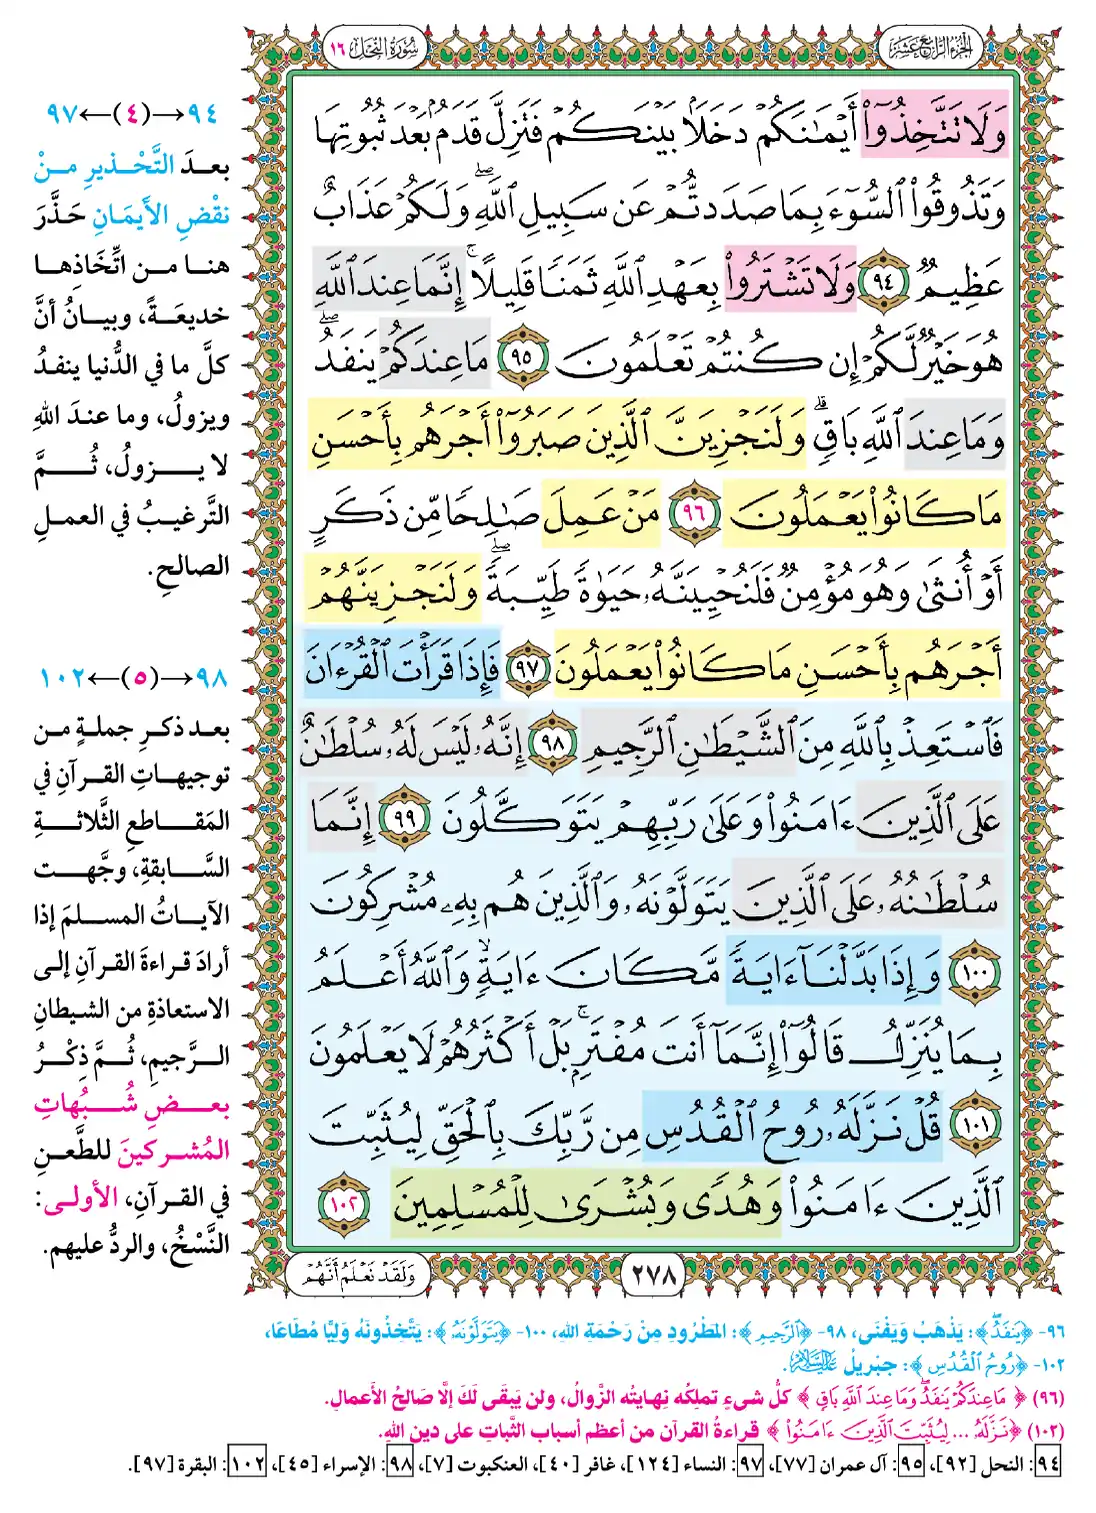 الجزء الرابع عشر
سورة النحل ١٦
وَلَا تَتَّخِذُوٓا۟ أَيْمَـٰنَكُمْ دَخَلًۢا بَيْنَكُمْ فَتَزِلَّ قَدَمٌۢ بَعْدَ ثُبُوتِهَا
وَتَذُوقُوا۟ ٱلسُّوٓءَ بِمَا صَدَدتُّمْ عَن سَبِيلِ ٱللَّهِ ۖ وَلَكُمْ عَذَابٌ
عَظِيمٌ ٩٤ وَلَا تَشْتَرُوا۟ بِعَهْدِ ٱللَّهِ ثَمَنًا قَلِيلًا ۚ إِنَّمَا عِندَ ٱللَّهِ
هُوَ خَيْرٌ لَّكُمْ إِن كُنتُمْ تَعْلَمُونَ ٩٥ مَا عِندَكُمْ يَنفَدُ ۖ
وَمَا عِندَ ٱللَّهِ بَاقٍ ۗ وَلَنَجْزِيَنَّ ٱلَّذِينَ صَبَرُوٓا۟ أَجْرَهُم بِأَحْسَنِ
مَا كَانُوا۟ يَعْمَلُونَ ٩٦ مَنْ عَمِلَ صَـٰلِحًا مِّن ذَكَرٍ
أَوْ أُنثَىٰ وَهُوَ مُؤْمِنٌ فَلَنُحْيِيَنَّهُۥ حَيَوٰةً طَيِّبَةً ۖ وَلَنَجْزِيَنَّهُمْ
أَجْرَهُم بِأَحْسَنِ مَا كَانُوا۟ يَعْمَلُونَ ٩٧ فَإِذَا قَرَأْتَ ٱلْقُرْءَانَ
فَٱسْتَعِذْ بِٱللَّهِ مِنَ ٱلشَّيْطَـٰنِ ٱلرَّجِيمِ ٩٨ إِنَّهُۥ لَيْسَ لَهُۥ سُلْطَـٰنٌ
عَلَى ٱلَّذِينَ ءَامَنُوا۟ وَعَلَىٰ رَبِّهِمْ يَتَوَكَّلُونَ ٩٩ إِنَّمَا
سُلْطَـٰنُهُۥ عَلَى ٱلَّذِينَ يَتَوَلَّوْنَهُۥ وَٱلَّذِينَ هُم بِهِۦ مُشْرِكُونَ
١٠٠ وَإِذَا بَدَّلْنَآ ءَايَةً مَّكَانَ ءَايَةٍ ۙ وَٱللَّهُ أَعْلَمُ
بِمَا يُنَزِّلُ قَالُوٓا۟ إِنَّمَآ أَنتَ مُفْتَرٍۭ ۚ بَلْ أَكْثَرُهُمْ لَا يَعْلَمُونَ
١٠١ قُلْ نَزَّلَهُۥ رُوحُ ٱلْقُدُسِ مِن رَّبِّكَ بِٱلْحَقِّ لِيُثَبِّتَ
ٱلَّذِينَ ءَامَنُوا۟ وَهُدًى وَبُشْرَىٰ لِلْمُسْلِمِينَ ١٠٢
٢٧٨
وَلَقَدْ نَعْلَمُ أَنَّهُمْ
٩٤→(٤)←٩٧
بعدَ التَّحْذيرِ مـنْ
نقْضِ الأَيمَـانِ حَذَّرَ
هنـا مـن اتِّخَاذِهـا
خديعَـةً، وبيـانُ أنَّ
كلَّ ما في الدُّنيا ينفدُ
ويزولُ، وما عندَ اللهِ
لا يــزولُ، ثُــمَّ
التَّرغيـبُ في العمـلِ
الصالحِ.
٩٨→(٥)←١٠٢
بعـد ذكـرِ جملـةٍ مـن
توجيهـاتِ القـرآنِ في
المَقـاطعِ الثَّلاثـةِ
السَّـابقةِ، وجَّهـت
الآيـاتُ المسلـمَ إذا
أرادَ قـراءةَ القـرآنِ إلـى
الاستعاذةِ مـن الشـيطانِ
الـرَّجيمِ، ثُـمَّ ذِكْـرُ
بعـضِ شُـبُهاتِ
المُشـركينَ للطَّعـنِ
في القـرآنِ، الأولـى:
النَّسْخُ، والردُّ عليهم.
٩٦- ﴿يَنفَدُ﴾: يَذْهَبُ وَيَفْنَى، ٩٨- ﴿ٱلرَّجِيمِ﴾: المَطْرُودِ مِنْ رَحْمَةِ اللهِ، ١٠٠- ﴿يَتَوَلَّوْنَهُۥ﴾: يَتَّخِذُونَهُ وَلِيًّا مُطَاعًا،
١٠٢- ﴿رُوحُ ٱلْقُدُسِ﴾: جِبْرِيلُ عليه السلام.
(٩٦) ﴿مَا عِندَكُمْ يَنفَدُ ۖ وَمَا عِندَ ٱللَّهِ بَاقٍ﴾ كلُّ شيءٍ تملِكُه نِهايتُه الزَّوالُ، ولن يَبقَى لَكَ إلَّا صَالحُ الأعمالِ.
(١٠٢) ﴿نَزَّلَهُۥ ... لِيُثَبِّتَ ٱلَّذِينَ ءَامَنُوا۟﴾ قراءةُ القرآن من أعظم أسباب الثَّباتِ على دين اللهِ.
٩٤: النحل [٩٢]، ٩٥: آل عمران [٧٧]، ٩٧: النساء [١٢٤]، غافر [٤٠]، العنكبوت [٧]، ٩٨: الإسراء [٤٥]، ١٠٢: البقرة [٩٧].